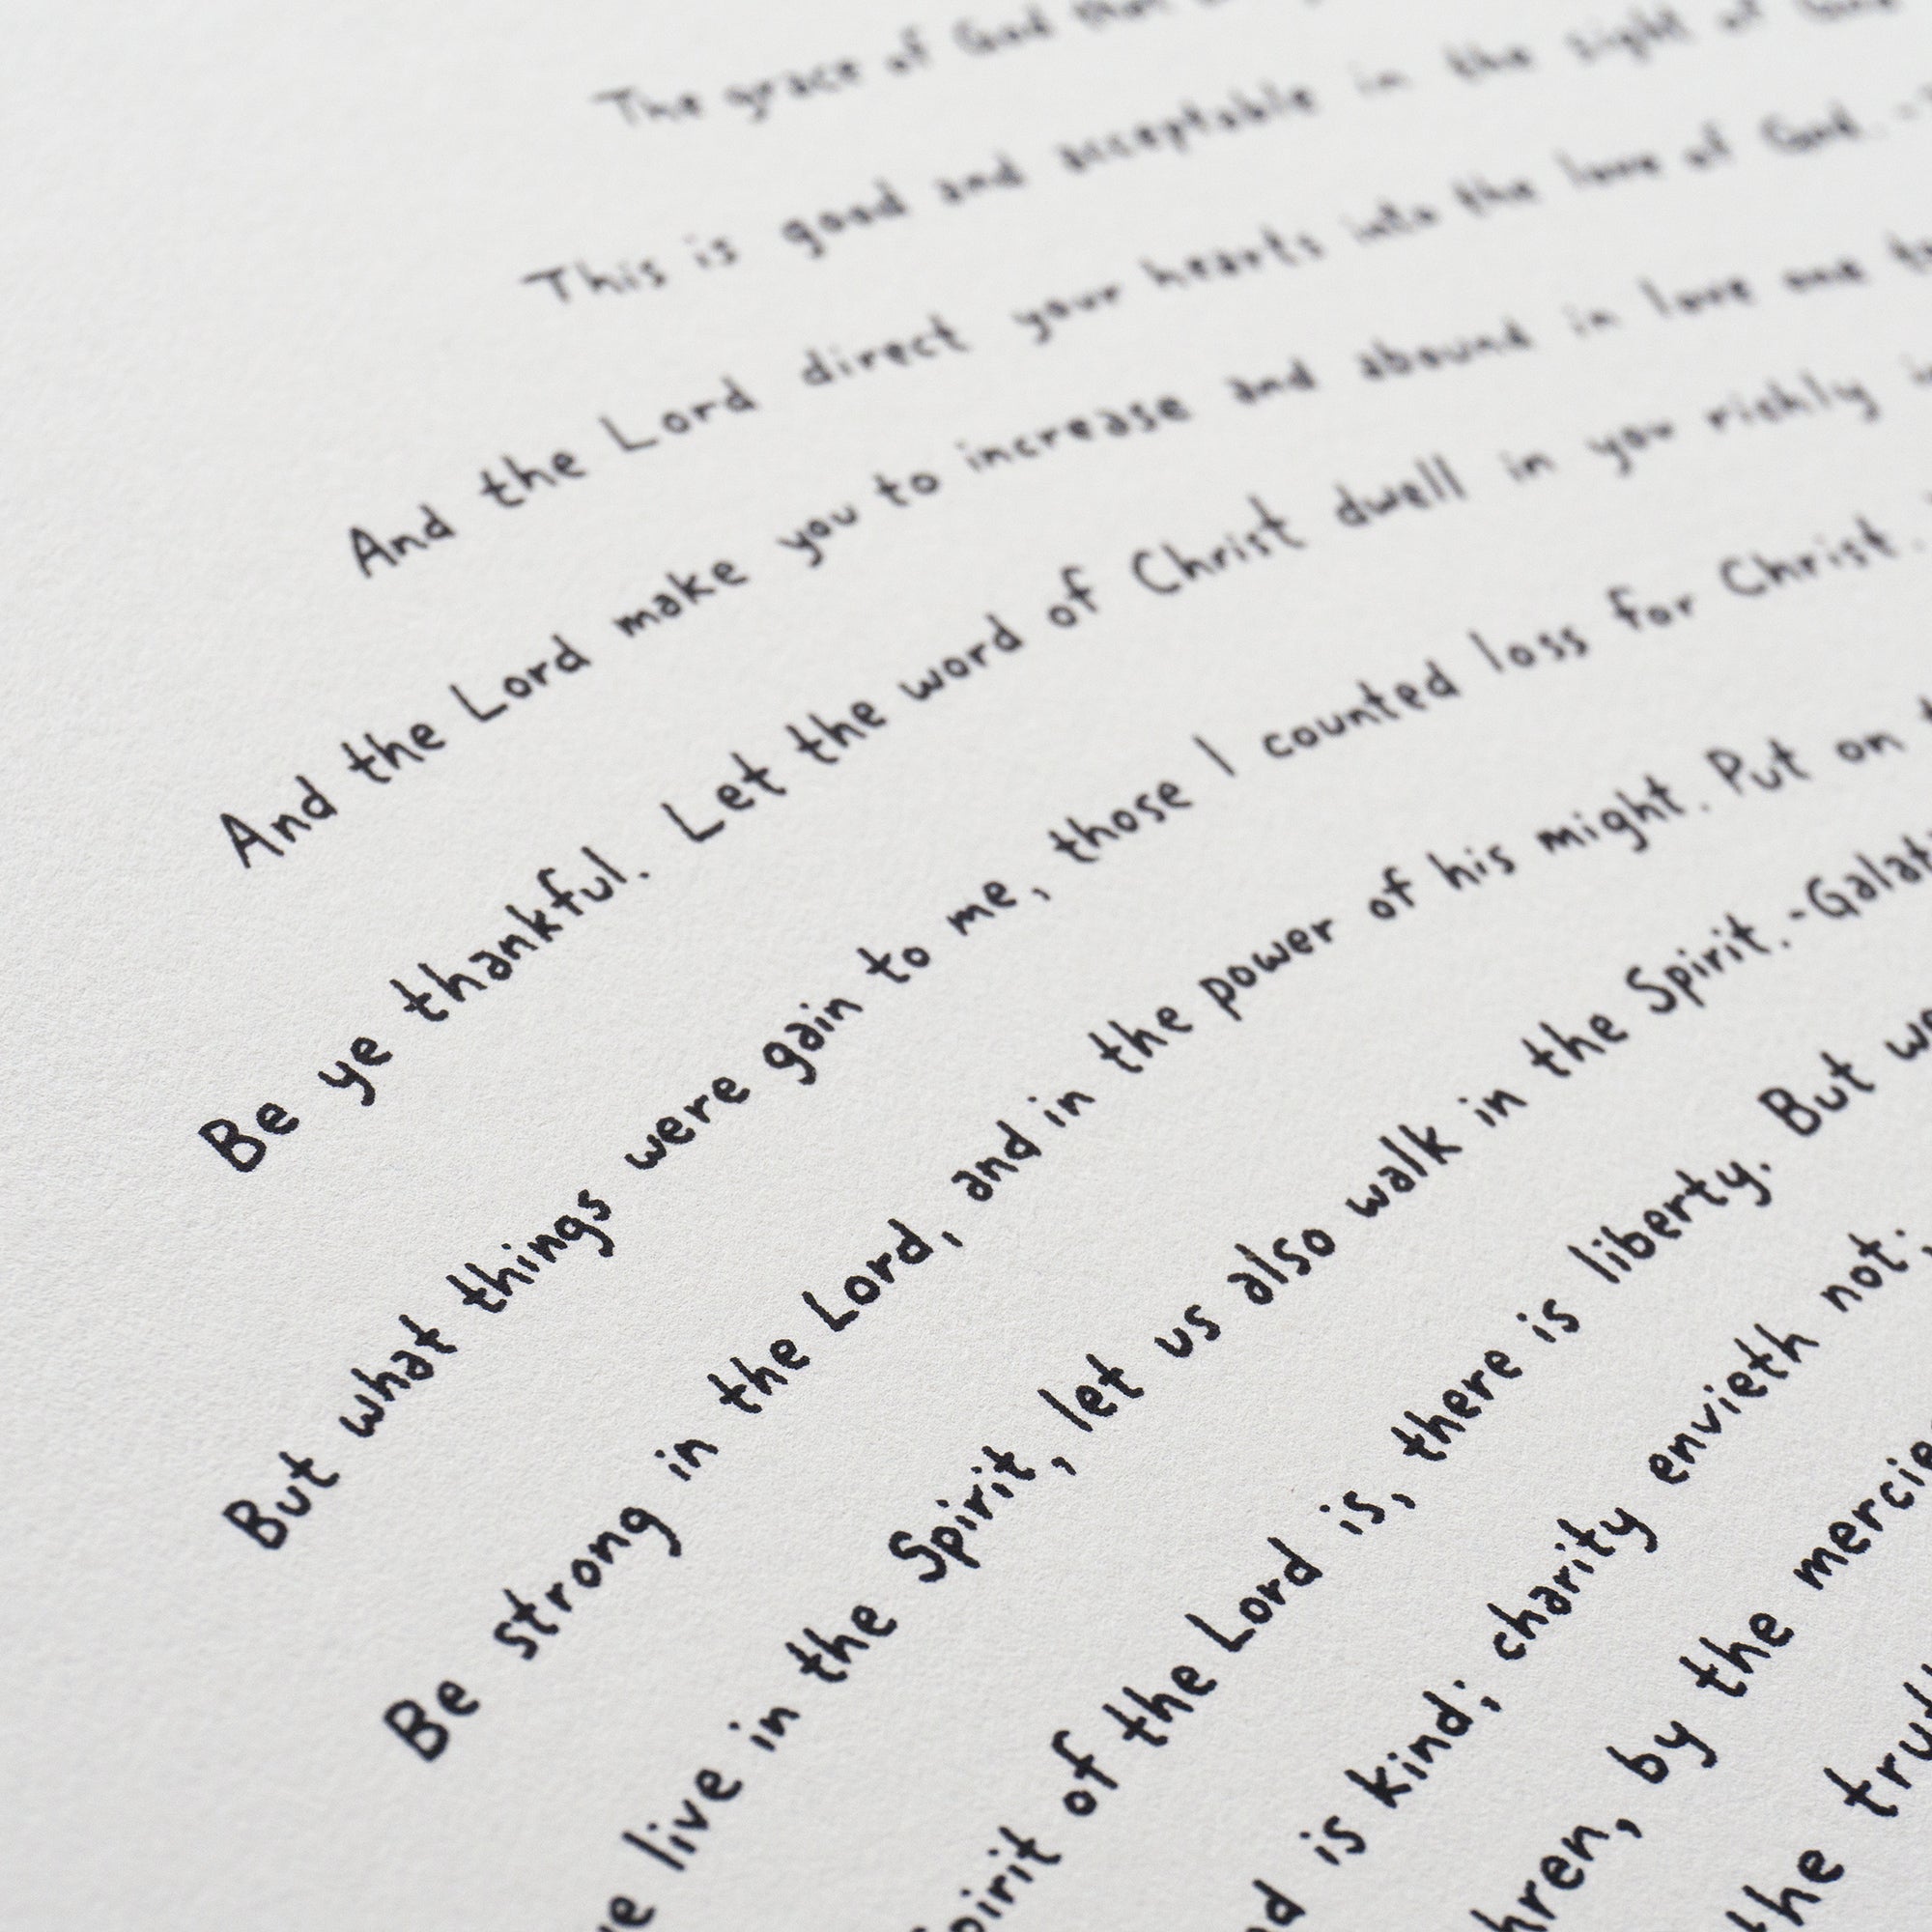 The grace of God that
This is good and acceptable in the sight of God
And the Lord direct your hearts into the love of God. -
And the Lord make you to increase and abound in love one
Be ye thankful. Let the word of Christ dwell in you richly
But what things were gain to me, those I counted loss for Christ.
Be strong in the Lord, and in the power of his might. Put on
live in the Spirit, let us also walk in the Spirit.-Galat
pirit of the Lord is, there is liberty. But we
d is kind; charity envieth not;
hren, by the mercie
the tru